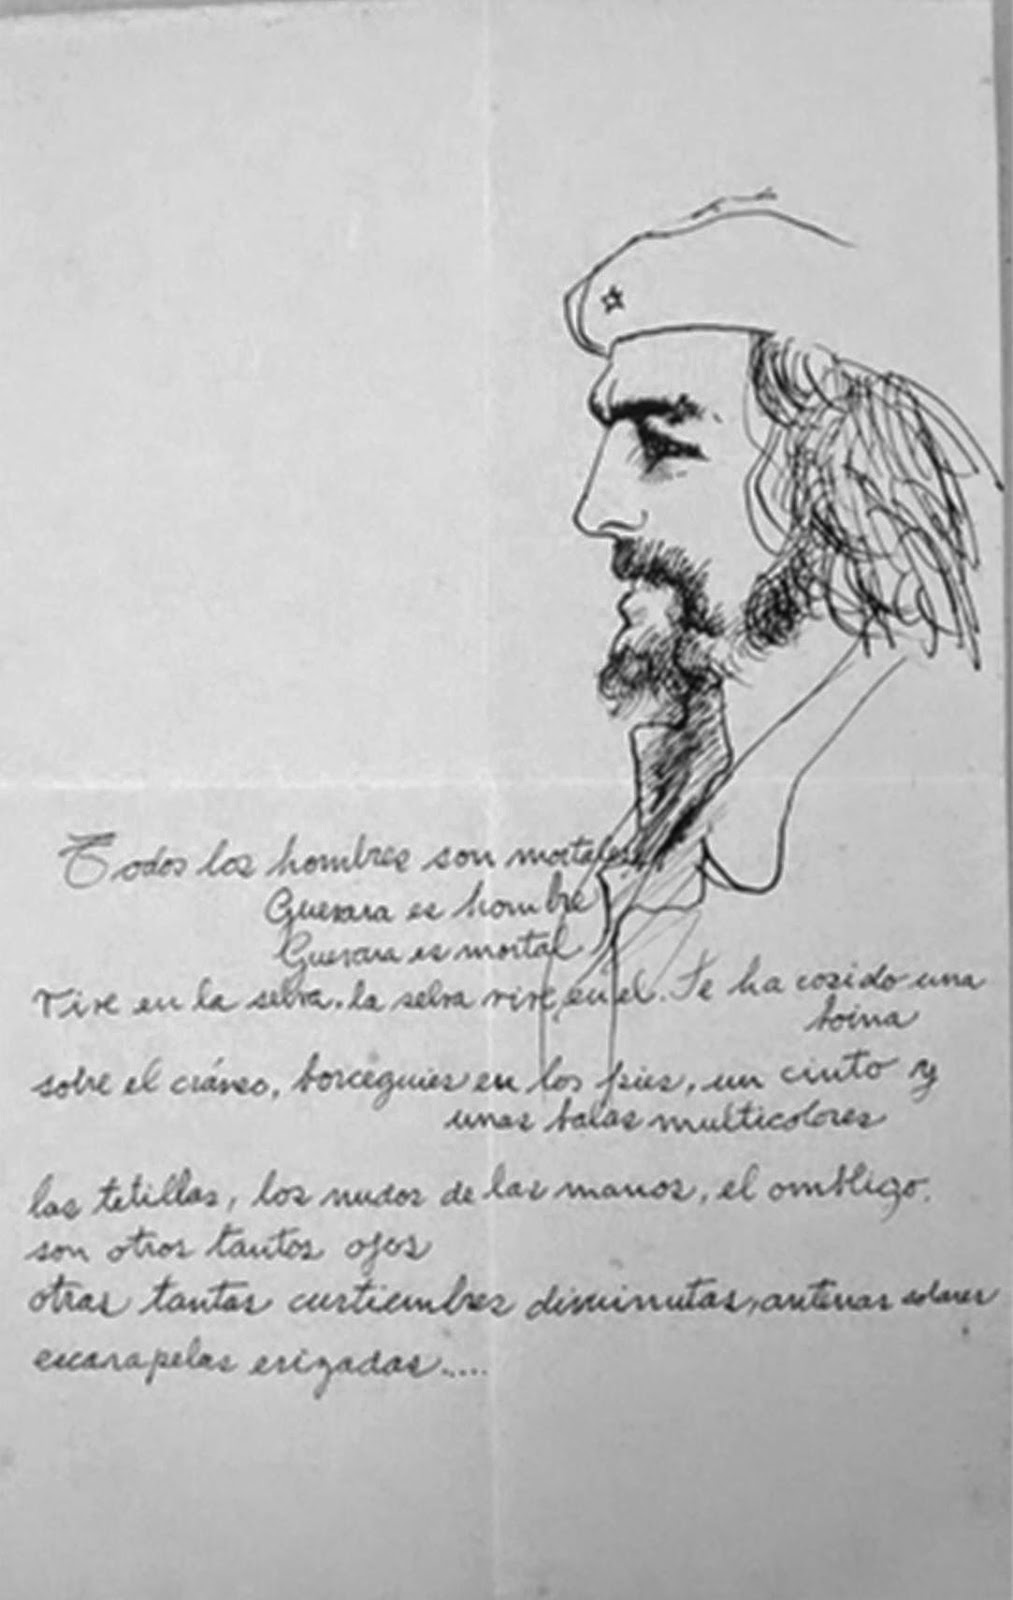 Todos los hombres son mortales
Guevara es hombre
Guevara es mortal
Vive en la selva. la selva vive en el. Se ha cosido una
boina
sobre el cráneo, borceguies en los pies, un cinto y
unas balas multicolores
las tetillas, los nudos de las manos, el ombligo.
son otros tantos ojos
otras tantas curtiembres diminutas, antenas solares
escarapelas erizadas.....